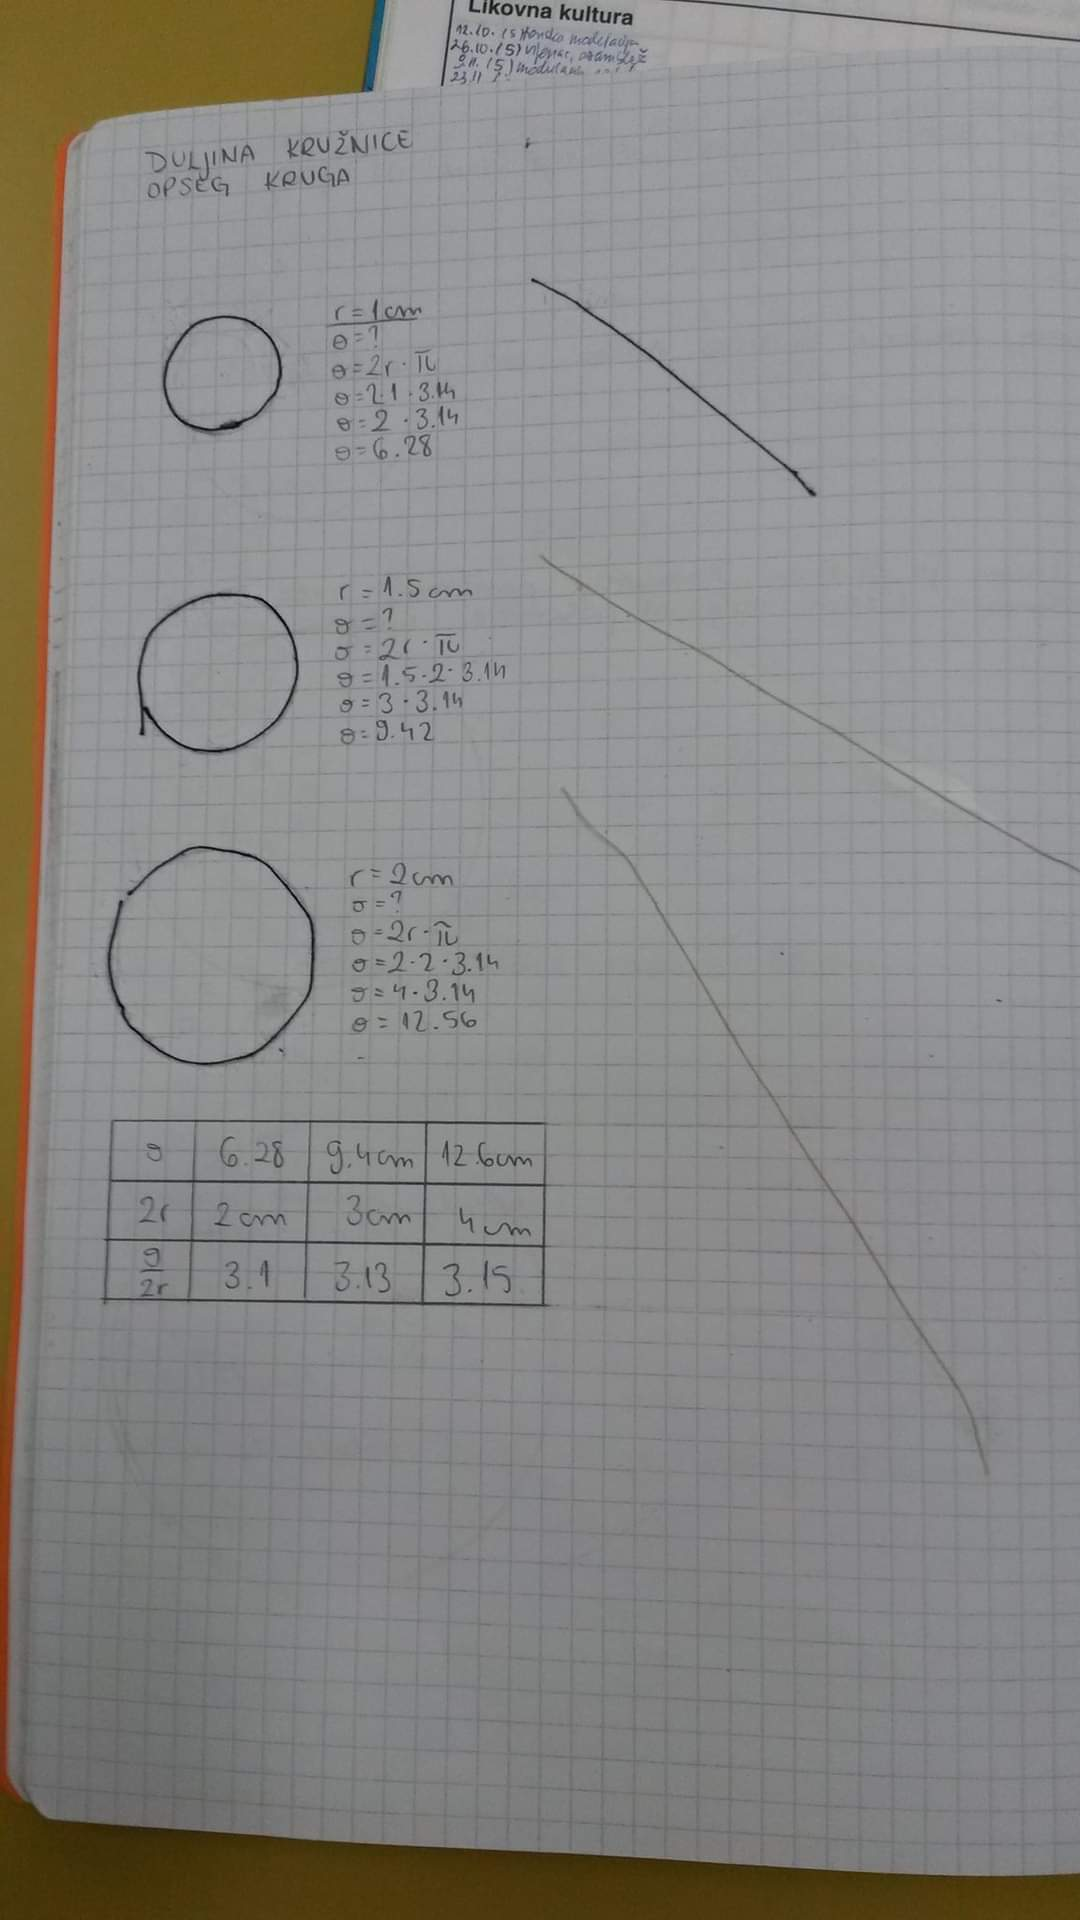 Likovna kultura
12.10. (5)
26.10. (5)
9.11. (5)
23.11
DULJINA KRUŽNICE
OPSEG KRUGA
r = 1cm
o = ?
o = 2r · π
o = 2·1 · 3.14
o = 2 · 3.14
o = 6.28
r = 1.5 cm
o = ?
o = 2r · π
o = 1.5 · 2 · 3.14
o = 3 · 3.14
o = 9.42
r = 2cm
o = ?
o = 2r · π
o = 2 · 2 · 3.14
o = 4 · 3.14
o = 12.56
o 6.28 9.4cm 12.6cm
2r 2cm 3cm 4cm
o/2r 3.1 3.13 3.15